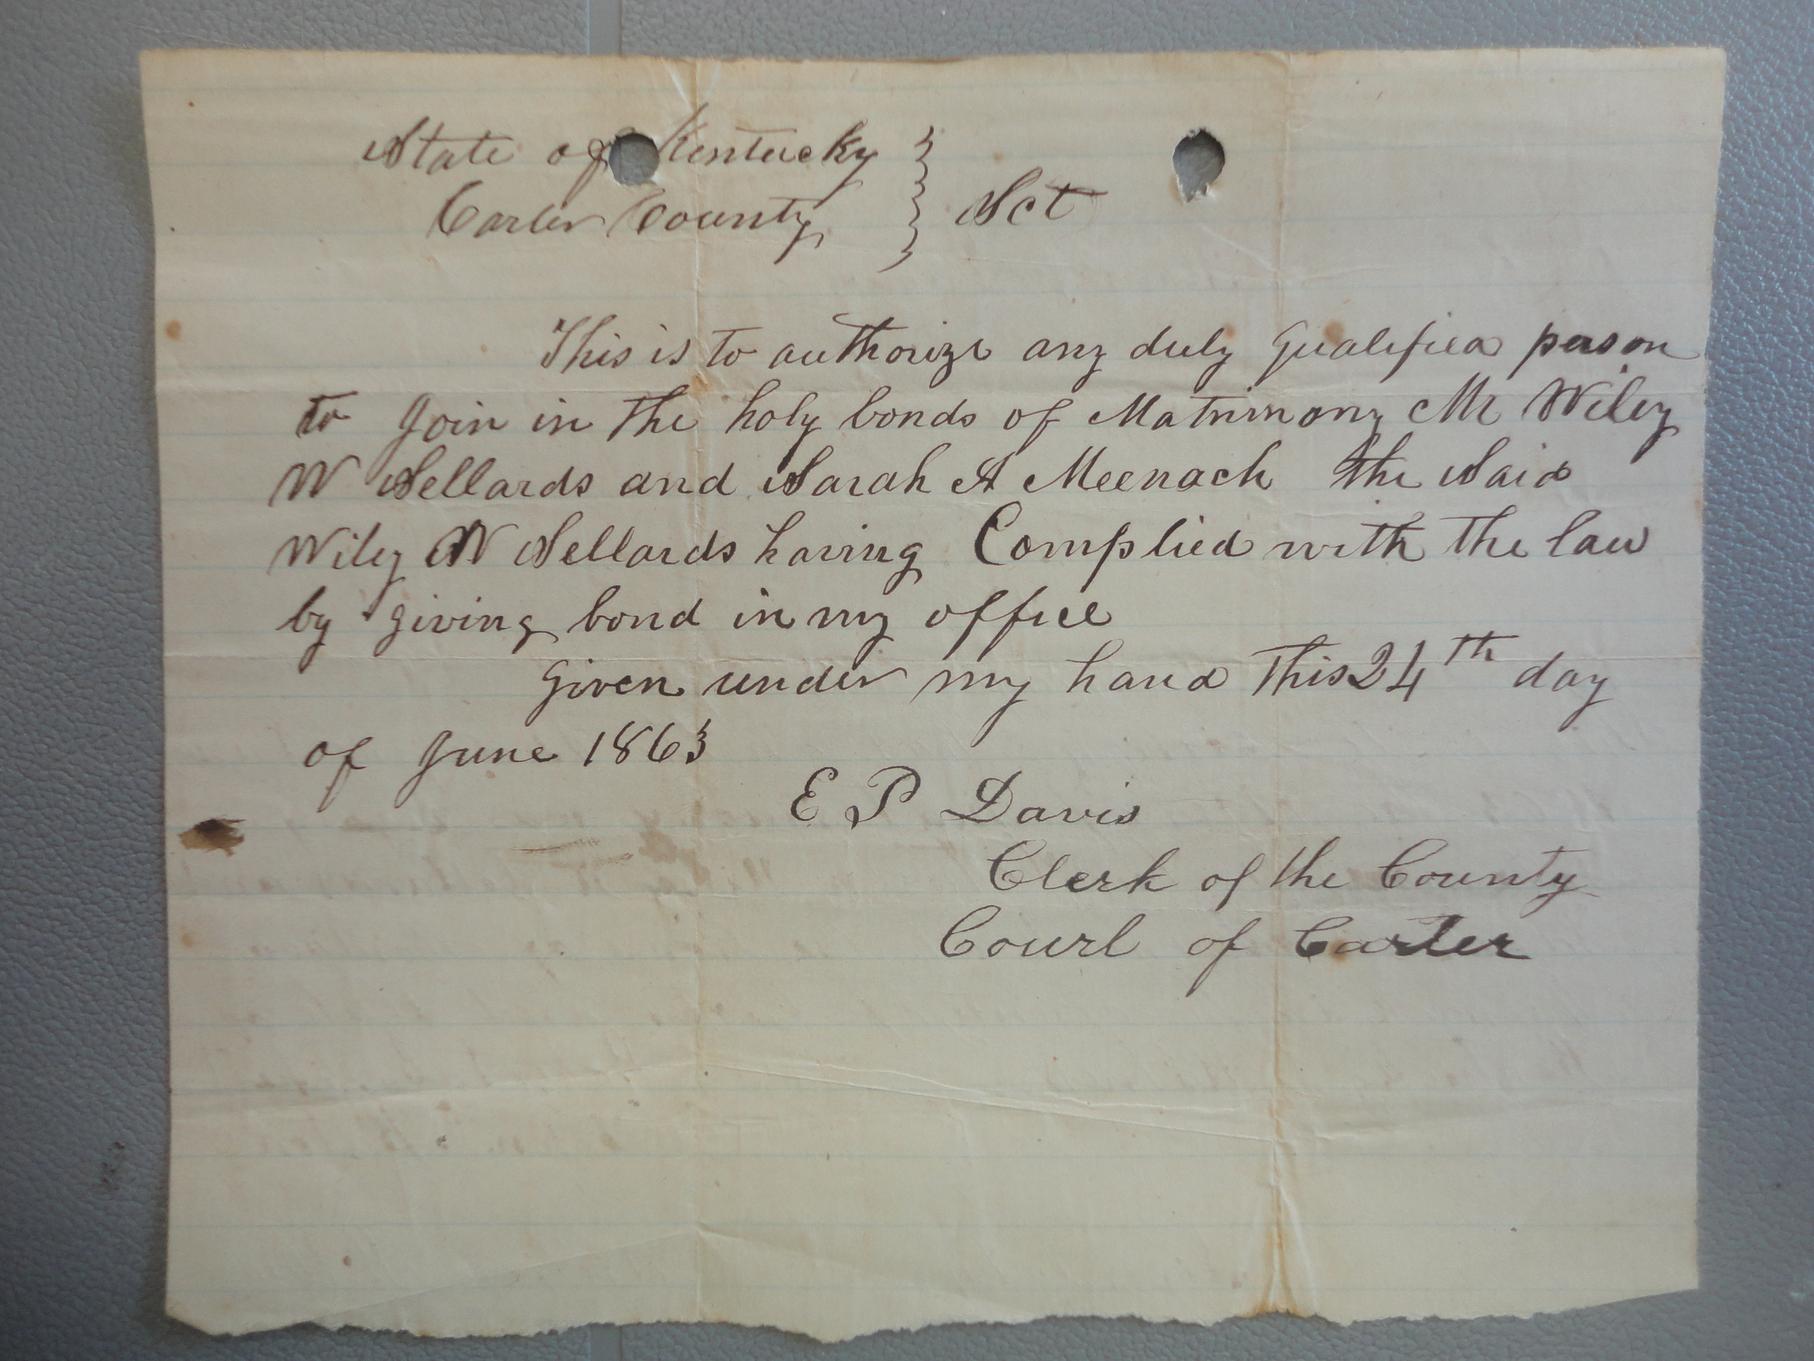 State of Kentucky
Carter County } Sct
This is to authorize any duly qualified person
to Join in the holy bonds of Matrimony Mr Wiley
W Sellards and Sarah A Meenach the Said
Wiley W Sellards having Complied with the law
by giving bond in my office
Given under my hand this 24th day
of June 1863
E P Davis
Clerk of the County
Court of Carter